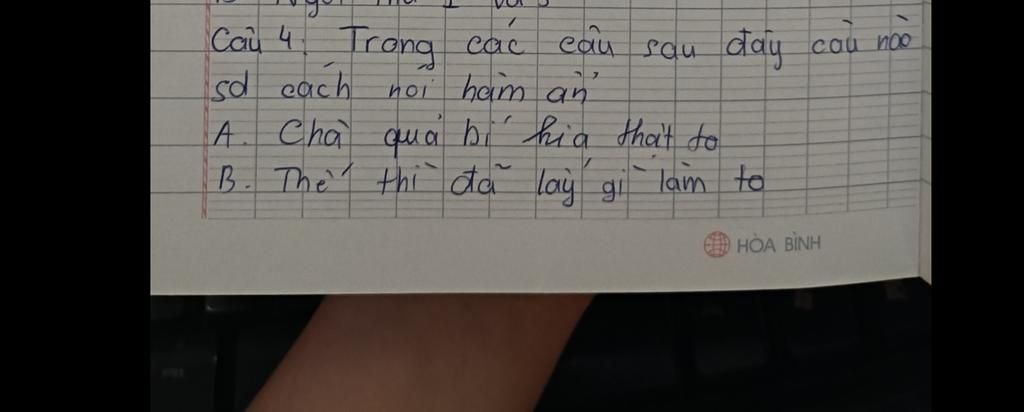 Câu 4: Trong các câu sau đây câu nào
sd cách nói hàm ẩn
A. Chà quả bí kia thật to
B. Thế thì đã lấy gì làm to
HÒA BÌNH